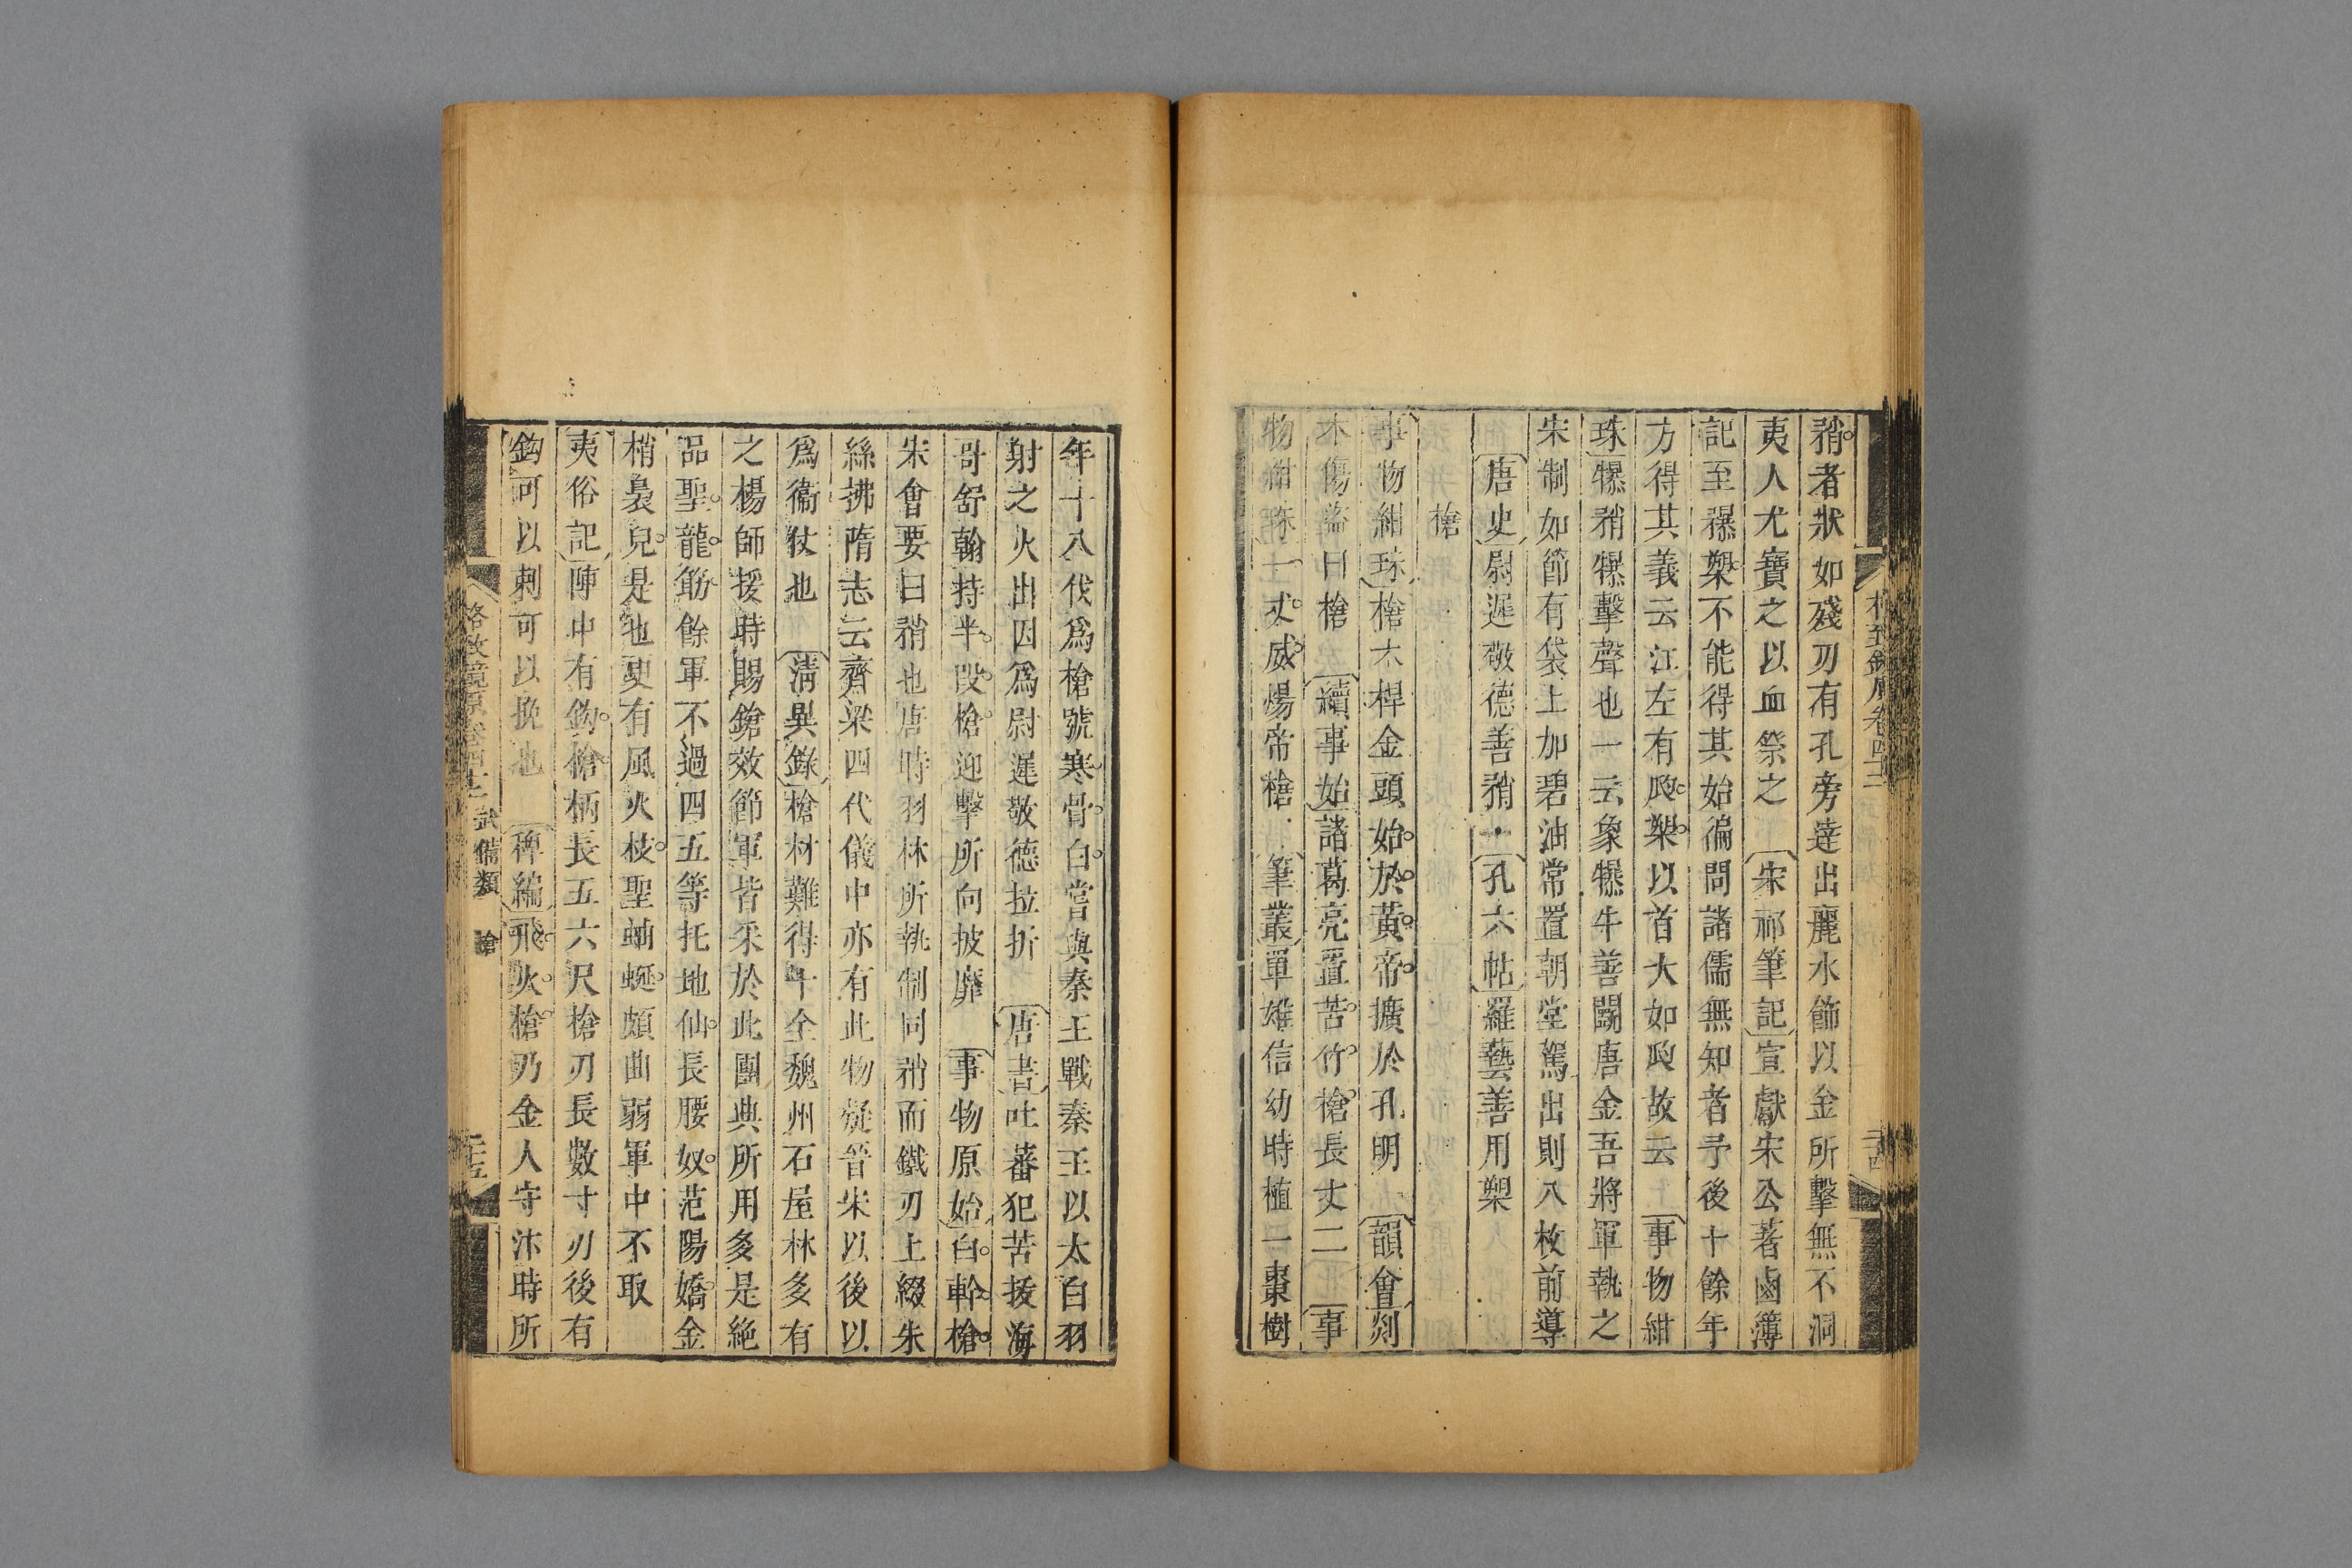 矟者狀如殘刃有孔旁達出麗水飾以金所擊無不洞
夷人尤寶之以血祭之 宋祁筆記宣獻宋公著鹵簿
記至𣝛槊不能得其始徧問諸儒無知者予後十餘年
方得其義云江左有瓟槊以首大如瓟故云 事物紺
珠犦矟犦擊聲也一云象犦牛善鬭唐金吾將軍執之
宋制如節有袋上加碧油常置朝堂駕出則八枚前導
唐史尉遲敬德善矟 孔六帖羅藝善用槊
槍
事物紺珠槍木桿金頭始於黃帝擴於孔明 韻會剡
木傷盜曰槍 續事始諸葛亮置苦竹槍長丈二 事
物紺珠一丈威煬帝槍 筆叢單雄信幼時植一棗樹
格致鏡原卷四十二 武備類 槍 二十五
年十八伐爲槍號寒骨白嘗與秦王戰秦王以太白羽
射之火出因爲尉遲敬德拉折 唐書吐蕃犯苦拔海
哥舒翰持半段槍迎擊所向披靡 事物原始白幹槍
宋會要曰矟也唐時羽林所執制同矟而鐵刃上綴朱
絲拂隋志云齊梁四代儀中亦有此物疑晉宋以後以
爲衞仗也 清異錄槍材難得十全魏州石屋林多有
之楊師援時賜鎗效節軍皆采於此團典所用多是絶
品聖龍筯餘軍不過四五等托地仙長腰奴范陽嬌金
梢裊兒是也更有風火枝聖蚰蜒頗曲弱軍中不取
夷俗記陣中有鈎槍柄長五六尺槍刃長數寸刃後有
鈎可以刺可以挽也 稗編飛火槍乃金人守汴時所